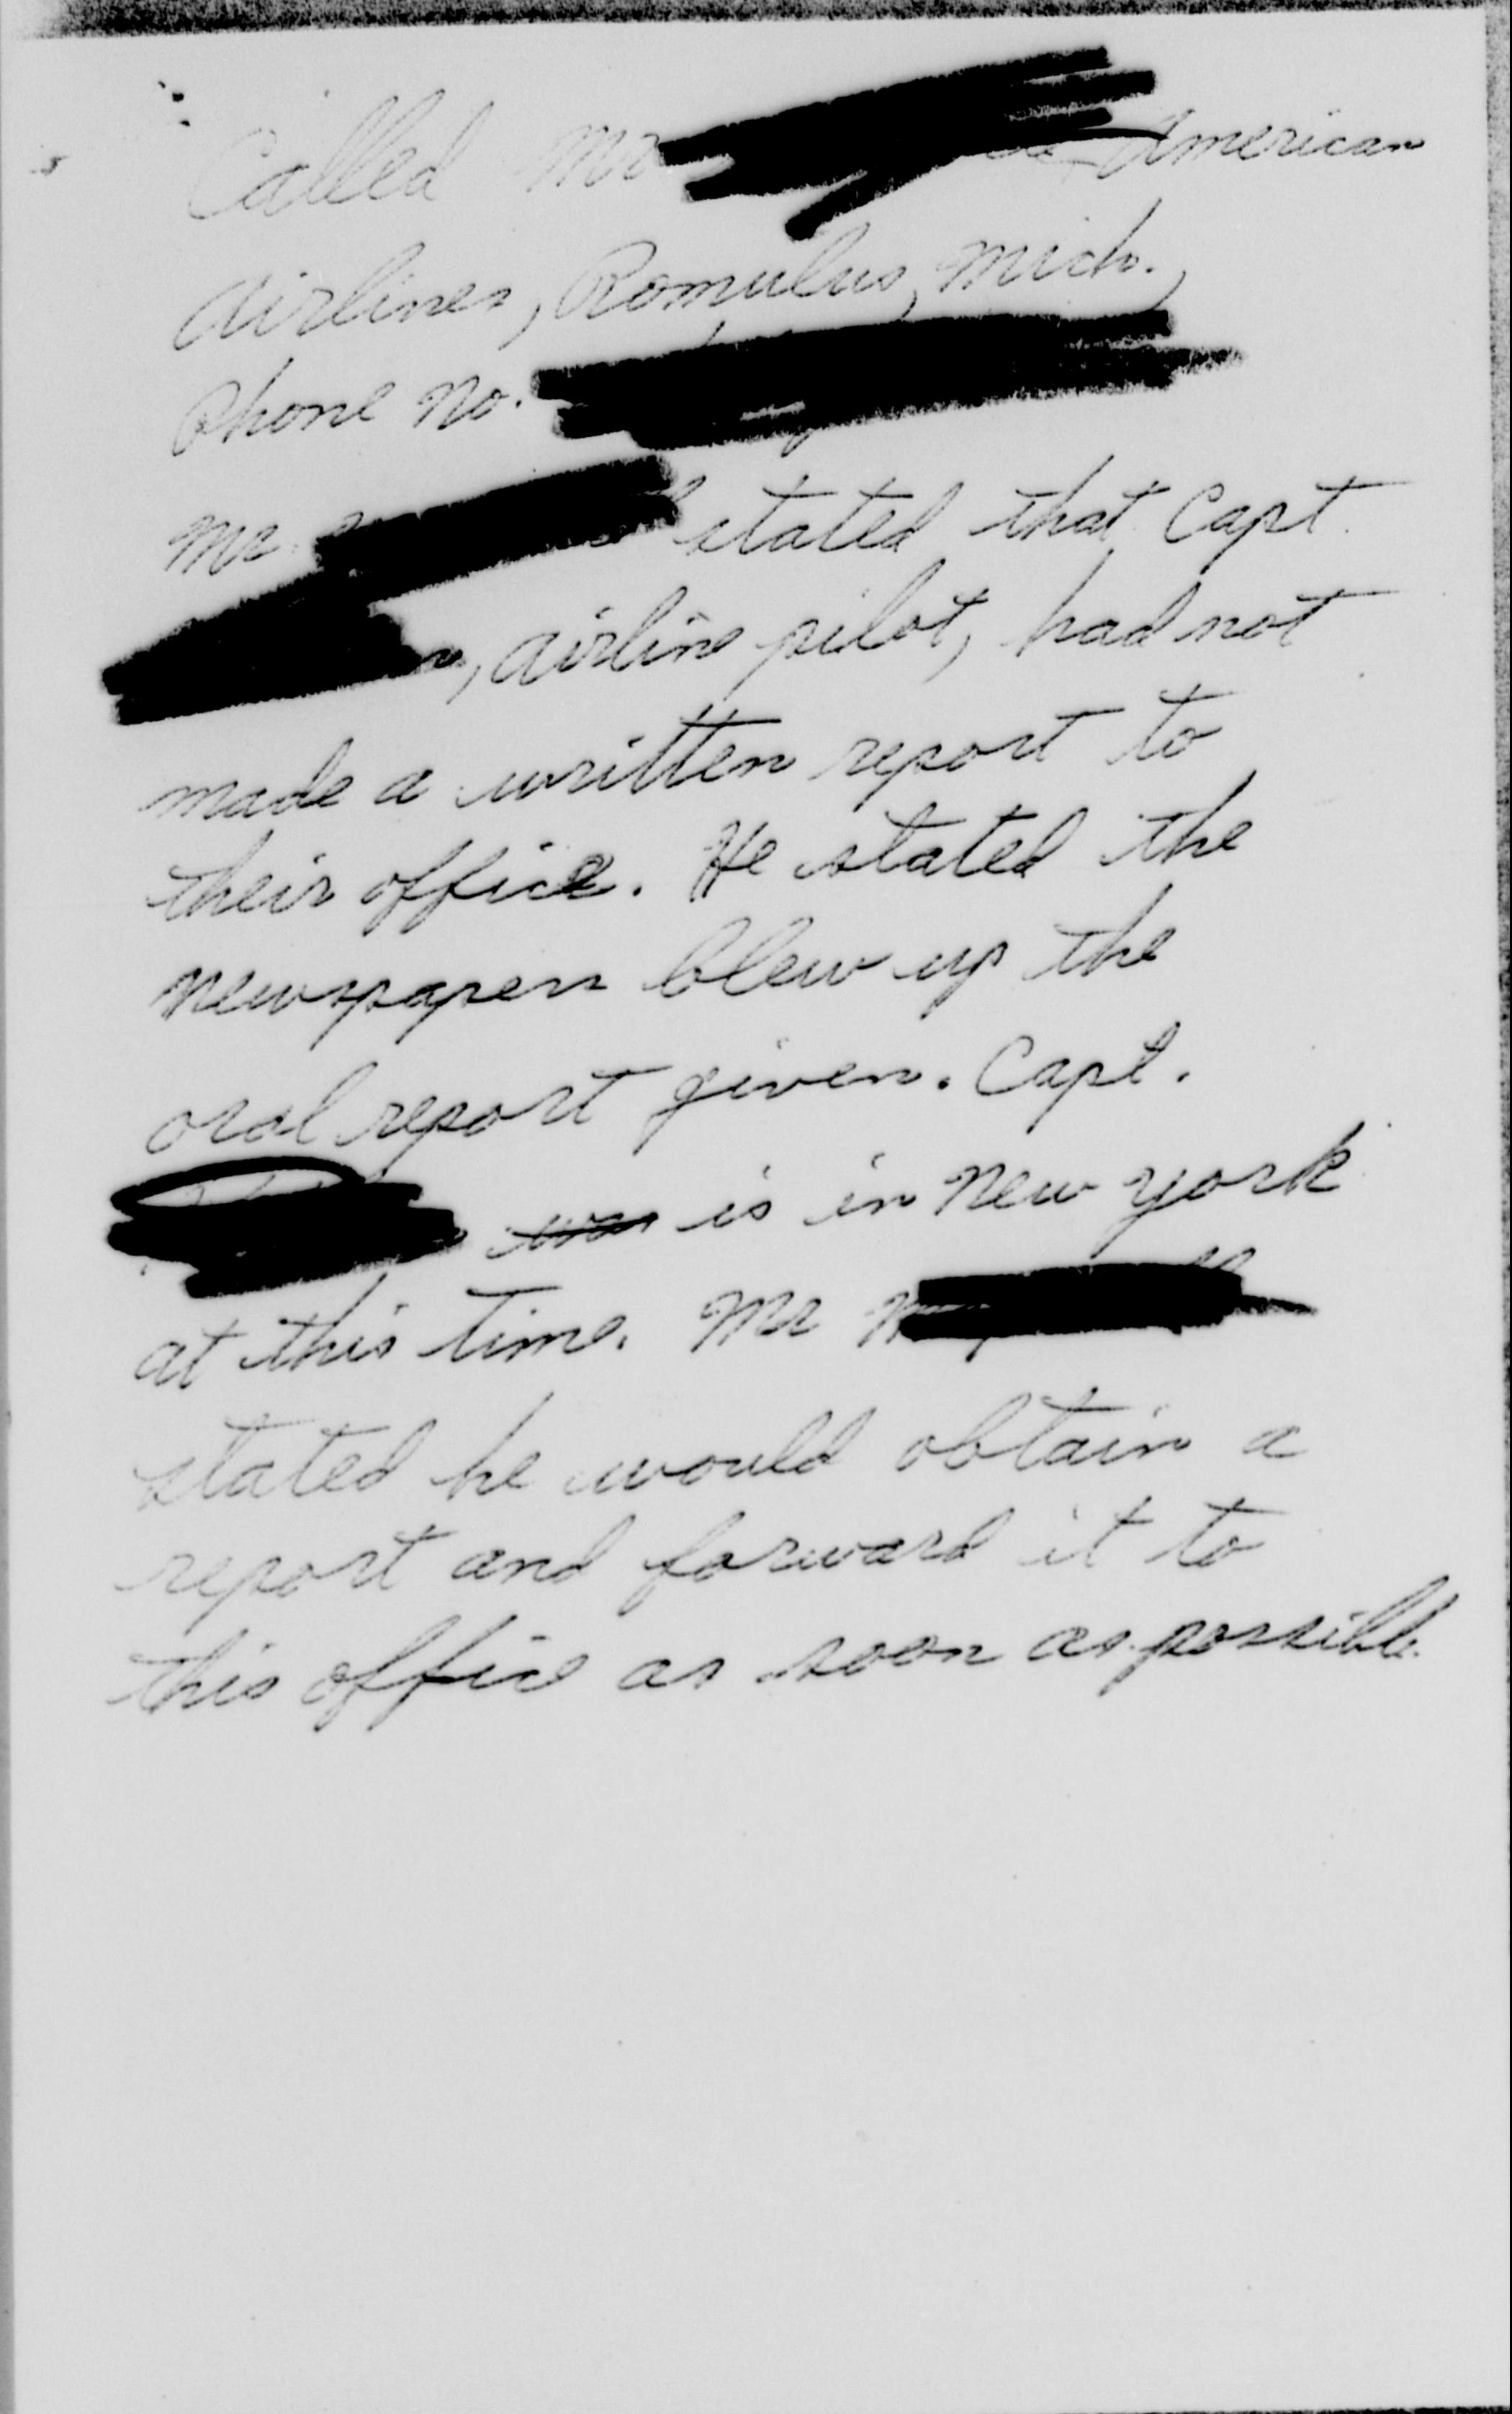 Called Mr American
Airlines, Romulus, Mich.,
Phone No.
Mr. stated that Capt.
, airline pilot, had not
made a written report to
their office. He stated the
newspapers blew up the
oral report given. Capt.
was is in New York
at this time. Mr
stated he would obtain a
report and forward it to
this office as soon as possible.